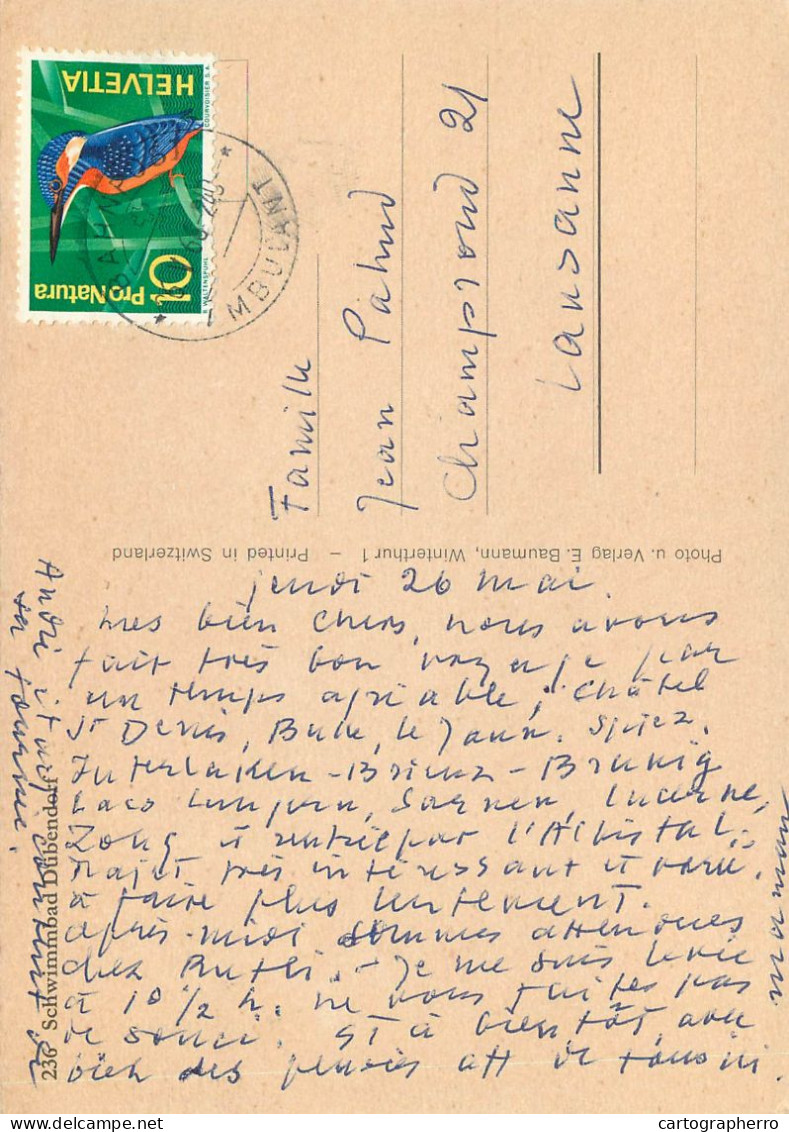 HELVETIA
COURVOISIER S.A.
10
Pro Natura
AMBULANT
Famille
Jean Pahud
Champrond 21
Lausanne
Photo u. Verlag E. Baumann, Winterthur 1 – Printed in Switzerland
236 Schwimmbad Dübendorf
jeudi 26 mai.
Mes bien chers, nous avons
fait très bon voyage par
un temps agréable, Châtel
St Denis, Bulle, le Jaun. Spiez.
Interlaken - Brienz - Brunig
Lacs Lungern, Sarnen, Lucerne,
Zoug et rentré par l'Albistal.
Trajet très intéressant et varié.
à faire plus lentement.
après-midi sommes attendues
chez Ruthi. - Je me suis levée
à 10 1/2 h. ne vous faites pas
de souci. et à bientôt, avec
bien des pensées aff de tous ici.
maman
André et
sa tournée.
cartographerro
delcampe.net